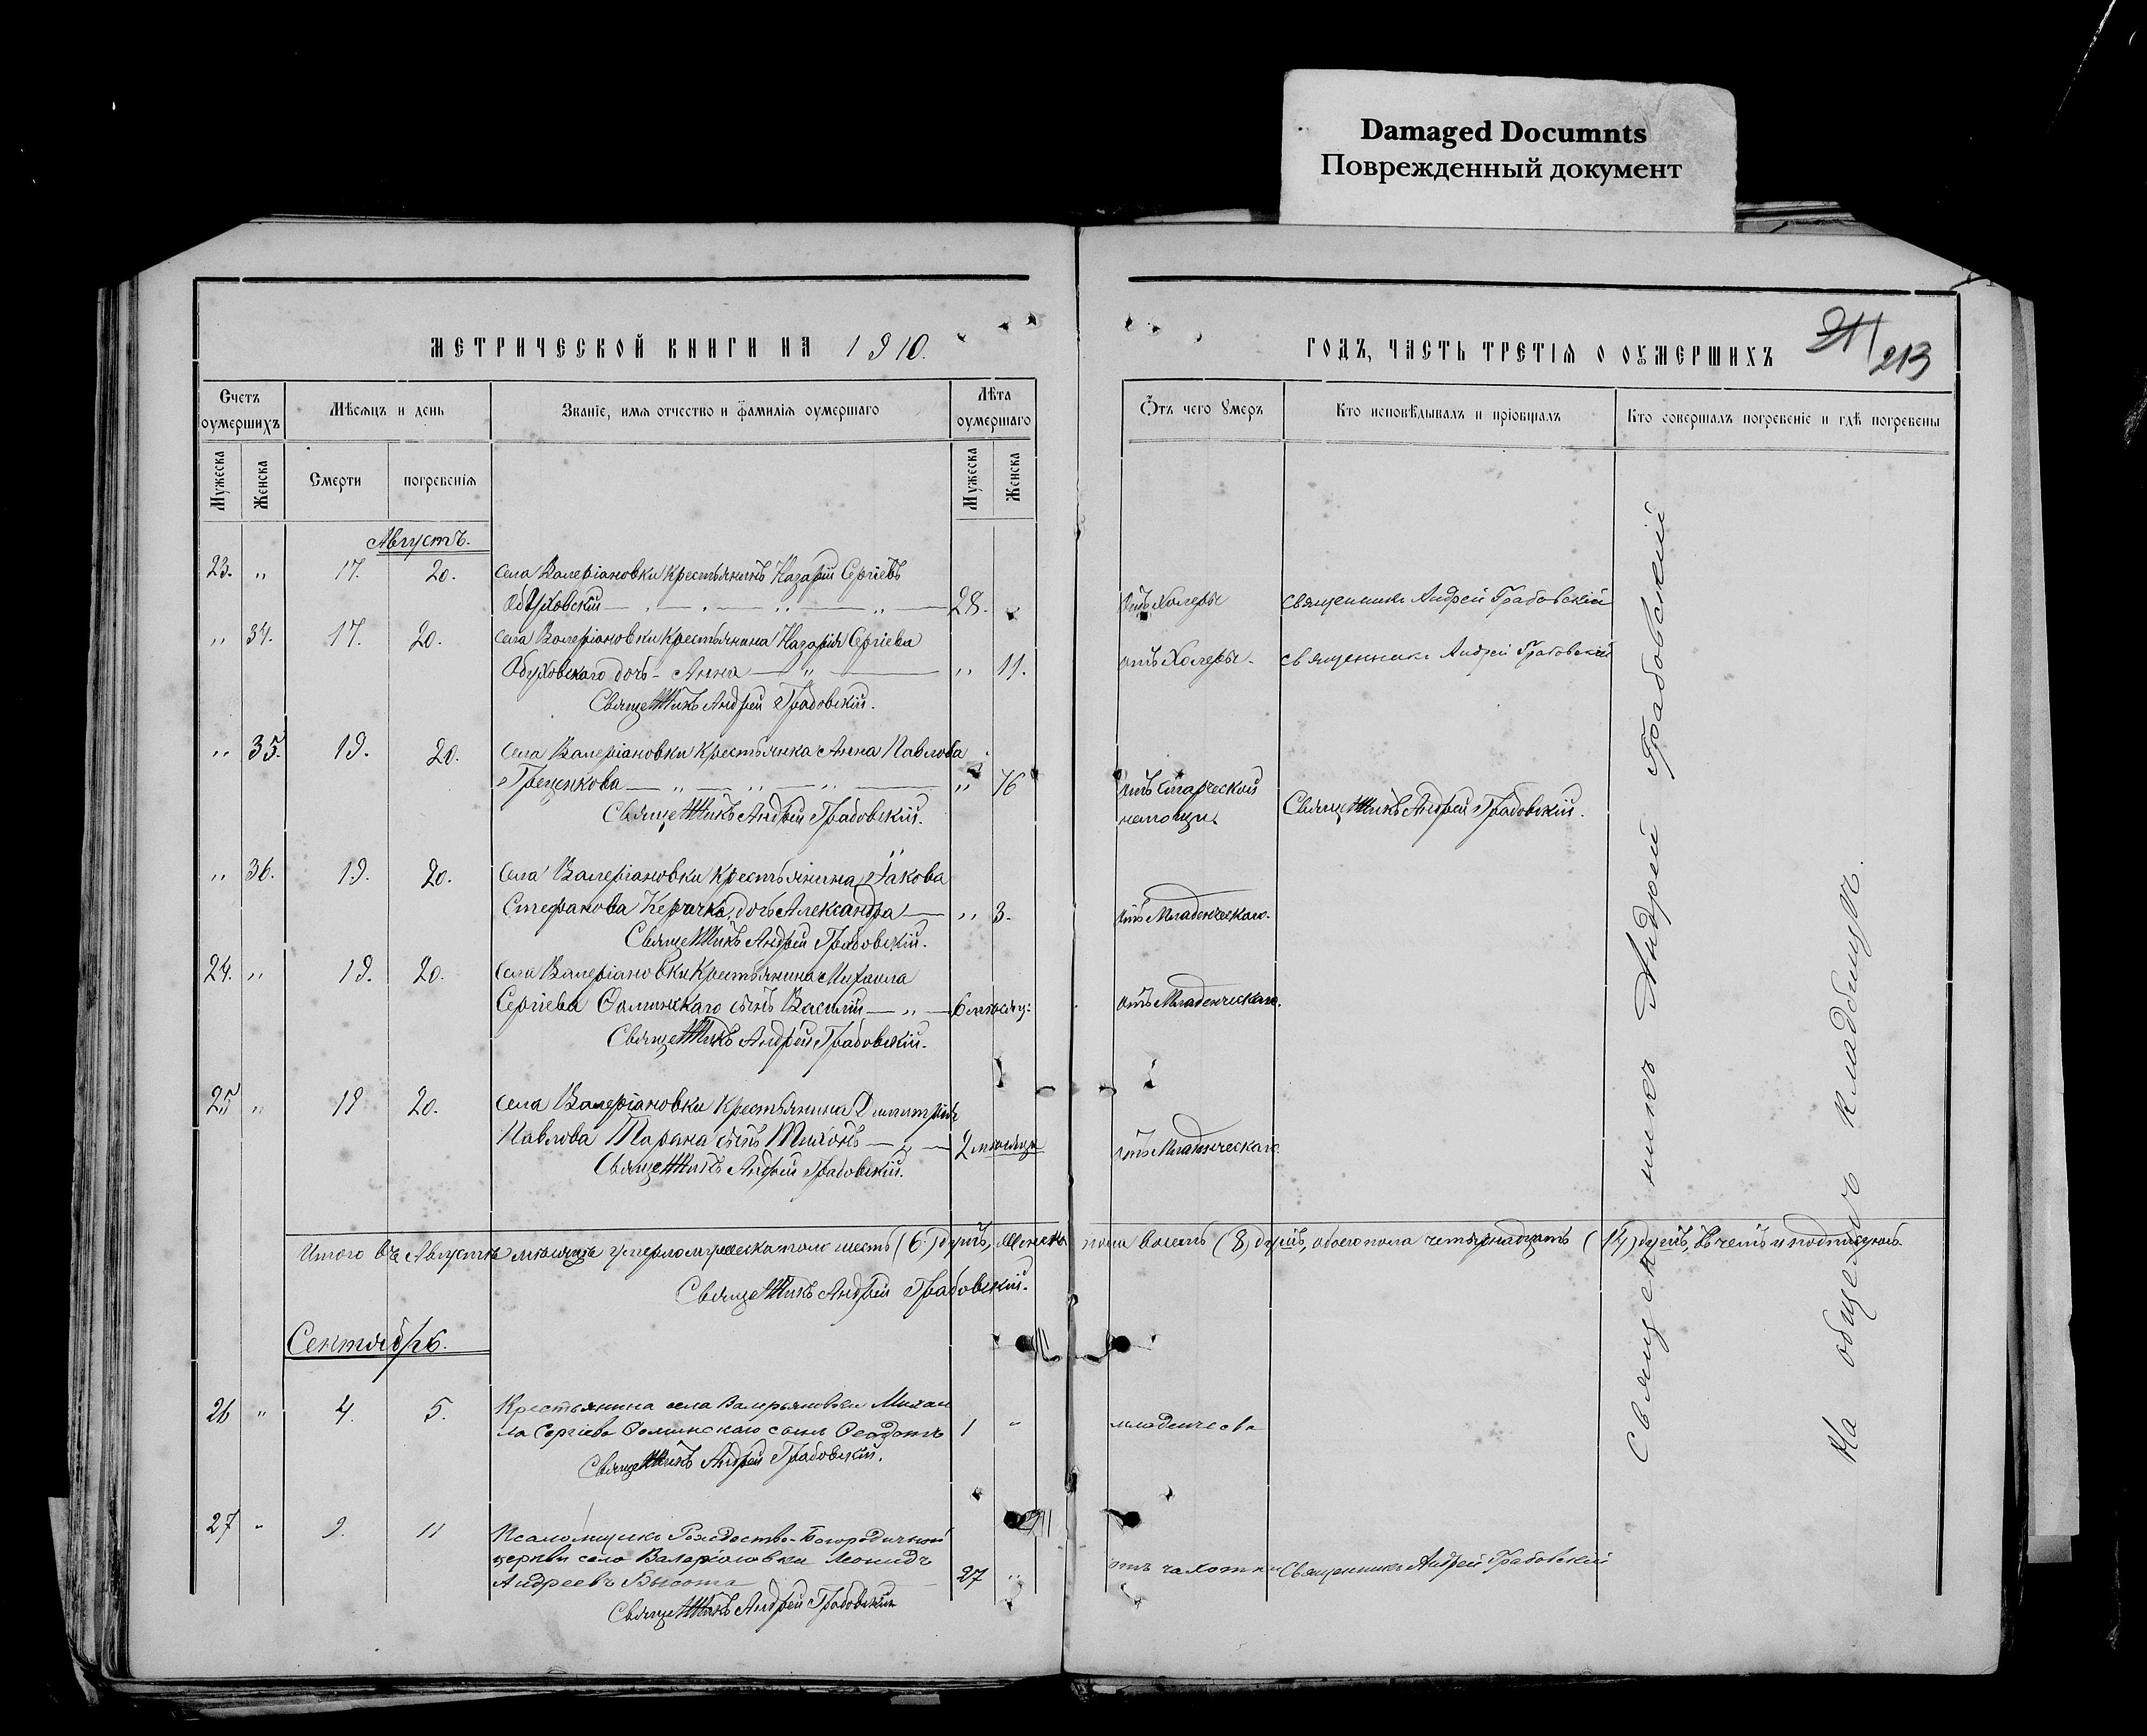 Damaged Documnts
Поврежденный документ
МЕТРИЧЕСКОЙ КНИГИ НА 1910.
ГОДЪ, ЧАСТЬ ТРЕТІЯ О ОУМЕРШИХЪ
211
213
Счетъ оумершихъ
Мѣсяцъ и день
Званіе, имя отчество и фамилія оумершаго
Лѣта оумершаго
Ѿтъ чего Умеръ
Кто исповѣдывалъ и пріобщалъ
Кто совершалъ погребеніе и гдѣ погребены
Мужеска
Женска
Смерти
погребенія
Мужеска
Женска
Августъ.
23. „ 17. 20. Села Валеріановки крестьянинъ Назарій Сергіевъ
Обуховскій — 28. „ отъ Холеры священникъ Андрей Грабовскій
„ 34. 17. 20. Села Валеріановки крестьянина Назарія Сергіева
Обуховскаго дочь - Анна — „ 11. отъ Холеры. священникъ Андрей Грабовскій
Священникъ Андрей Грабовскій.
„ 35. 19. 20. Села Валеріановки крестьянка Анна Павлова
Грещенкова — „ 76 отъ старческой
немощи. Священникъ Андрей Грабовскій.
Священникъ Андрей Грабовскій.
„ 36. 19. 20. Села Валеріановки крестьянина Іакова
Стефанова дочь Александра — „ 3. отъ Младенческаго.
Священникъ Андрей Грабовскій.
24. „ 19. 20. Села Валеріановки крестьянина Михаила
Сергіева сынъ Василій — „ — 6 мѣсяц: отъ Младенческаго.
Священникъ Андрей Грабовскій.
25 „ 19 20. Села Валеріановки крестьянина Димитрія
Павлова Тарана сынъ Тихонъ — „ — 2 мѣсяца отъ Младенческаго.
Священникъ Андрей Грабовскій.
Итого въ Августѣ мѣсяцѣ умерло мужеска пола шесть (6) душъ, женска пола восемь (8) душъ, обоего пола четырнадцать (14) душъ, въ чемъ и подписуюсь.
Священникъ Андрей Грабовскій.
Сентябрь.
26 „ 4. 5. Крестьянина села Валерьяновки Михаи
ла Сергіева сынъ Феодотъ 1 „ младенчества
Священникъ Андрей Грабовскій.
27 „ 9. 11 Псаломщикъ Рождество-Богородичной
церкви села Валеріановки Леонидъ
Андреевъ Высота 27 „ отъ чахотки Священникъ Андрей Грабовскій
Священникъ Андрей Грабовскій
Священникъ Андрей Грабовскій
На общемъ кладбищѣ.